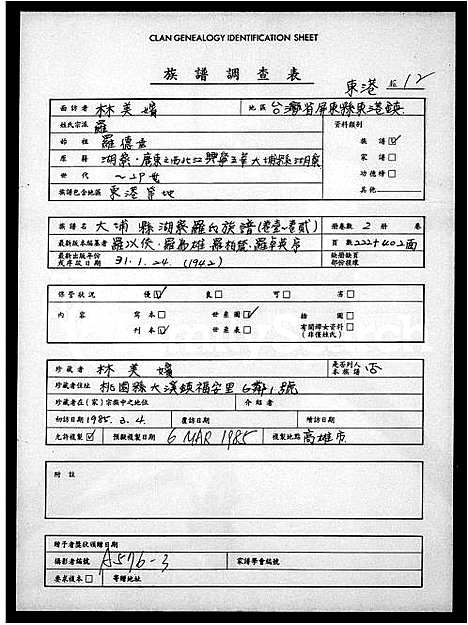 CLAN GENEALOGY IDENTIFICATION SHEET
族譜調查表
東港 12
面訪者 林美嬪 地區 台灣省屏東縣東港鎮
姓氏宗派 羅 資料類別
始祖 羅德 族譜
原籍 湖寮·廣東 興寧五華大埔縣湖寮 家譜
世代 功德榜
族譜包含地區 東港等地 其他
族譜名 大埔縣湖寮羅氏族譜(卷壹~卷貳) 冊卷數 2 冊 卷
最新版本編纂者 羅以俟 羅為雄 羅柏 頁數 222+402面
最新出版年份或序跋日期 31.1.24. (1942) 缺冊缺頁部份種種
保管狀況 優 良 可 劣
內容 寫本 世系圖 插圖
刊本 世系表 有關婦女資料(非僅姓氏)
珍藏者 林美嬪 是否列入本族譜 否
珍藏者住址 桃園縣大溪鎮福安里6鄰1號
珍藏者在(家)宗族中之地位 介紹者
初訪日期 1985. 3. 4. 覆訪日期 續訪日期
允許複製 預擬複製日期 6 MAR 1985 複製地點 高雄市
附註
贈予者獎狀頒贈日期
攝影者編號 A576-3 家譜學會編號
要求複本 寄贈地址